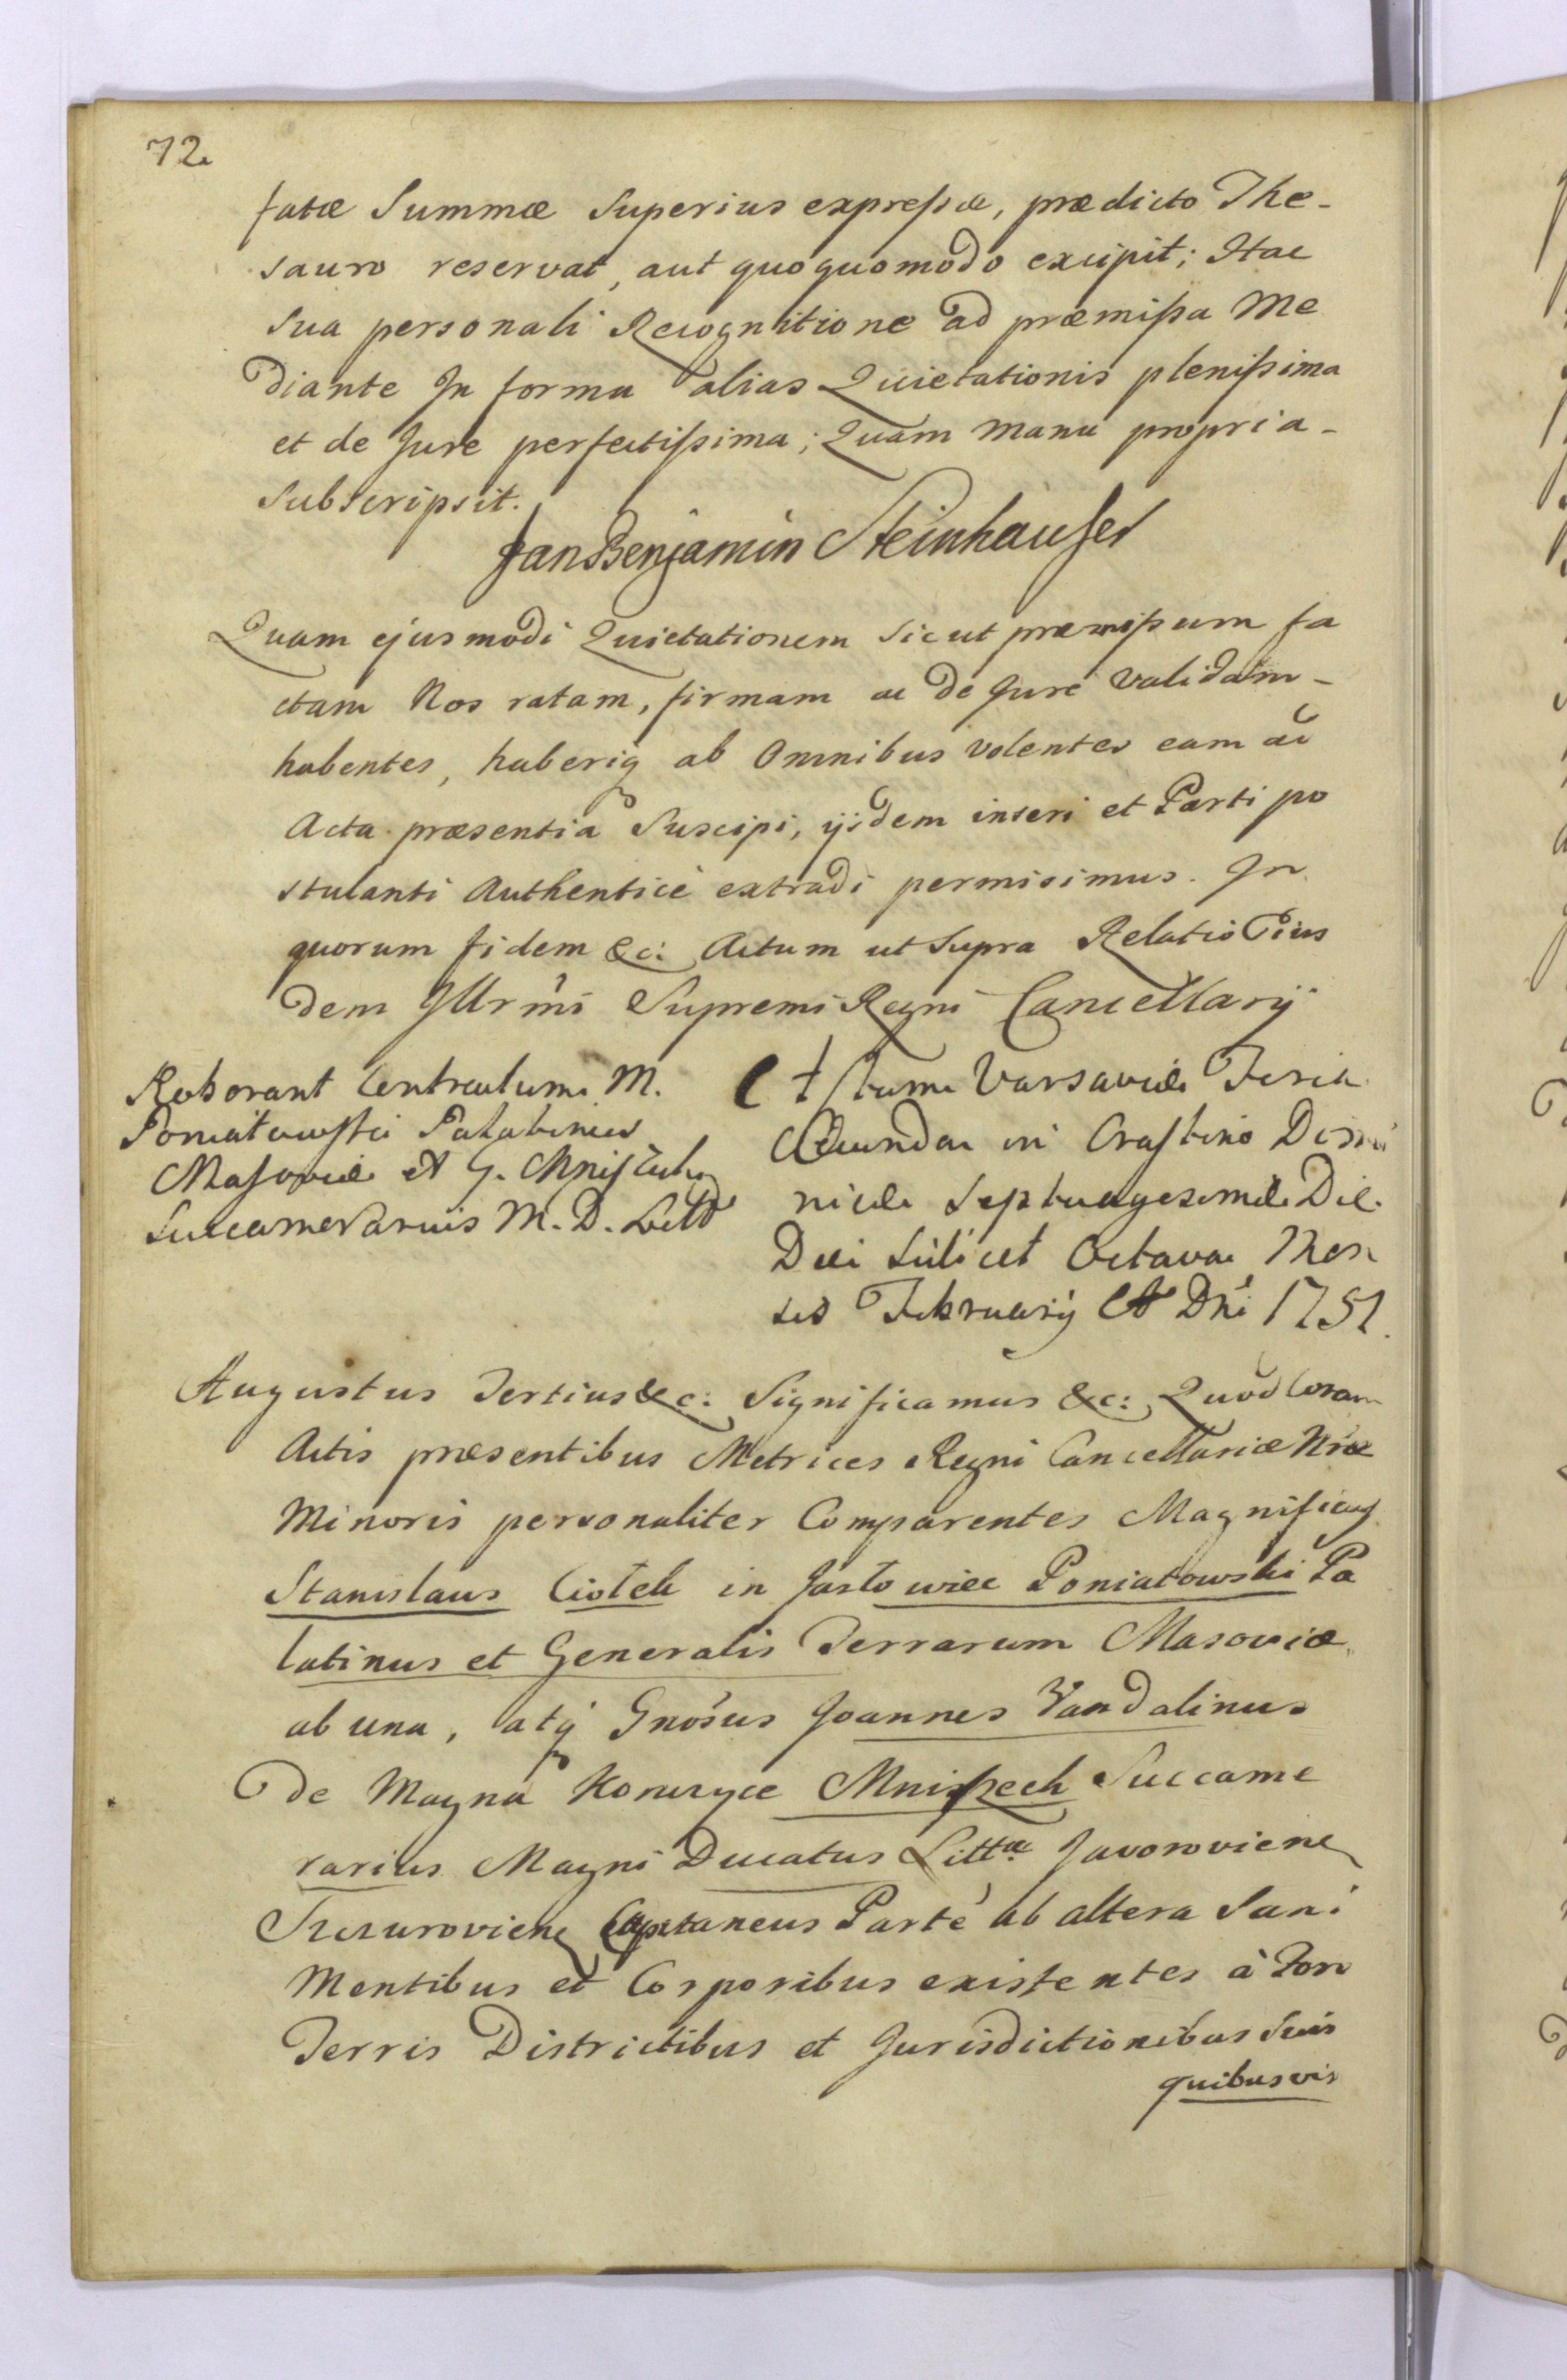 72.
fatæ Summæ Superius expreſsæ, prædicto The-
sauro reservat, aut quoquomodo excipit; Hac
Sua personali Recognitione ad præmiſsa Me
diante In forma alias Quietationis pleniſsima
et de Jure perfectiſsima; Quam Manu propria-
Subscripsit.
Jan Benjamin Steinhauſer
Quam ejusmodi Quietationem Sicut præmiſsum fa
ctam Nos ratam, firmam ac de Jure validam-
habentes, haberiq ab Omnibus volentes eam ad
Acta præsentia Suscipi, ijsdem inseri et Parti po
stulanti Authenticè extradi permisimus. In
quorum fidem &c: Actum ut Supra Relatio Eius
dem Illrmi Supremi Regni Cancellarij
Roborant Contractum M.
Poniatowſki Palatinus
Maſoviæ et G.
Succamerarius M. D. Litt
Actum Varsaviæ Feria
Secunda in Craſtino Domi
nicæ Septuagesimæ Die
Dei Scilicet Octava Men
sis February A Dni 1751.
Augustus Tertius &c: Significamus &c: Quod Coram
Actis præsentibus Metrices Regni Cancellariæ Nræ
Minoris personaliter Comparentes Magnificus
Stanislaus Ciołek in Jasłowiec Poniatowski Pa
latinus et Generalis Terrarum Masoviæ
ab una, atq Gnosus Joannes Vandalinus
de Magna Konczyce Mniſzech Succame
rarius Magni Ducatus Littæ Javoroviens
Capitaneus Parte ab altera Sani
Mentibus et Corporibus existentes à Foro
Terris Districtibus et Jurisdictionibus Suis
quibusvis